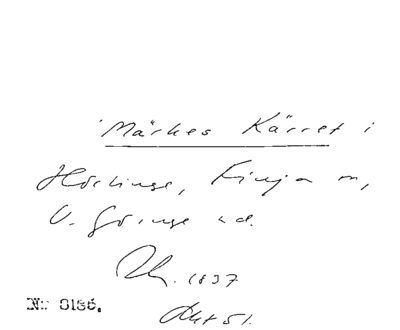 Märkes Kärret i
Hörlinge, Finja m,
V. Göinge hd.
1837
No 0186.
Akt 51.